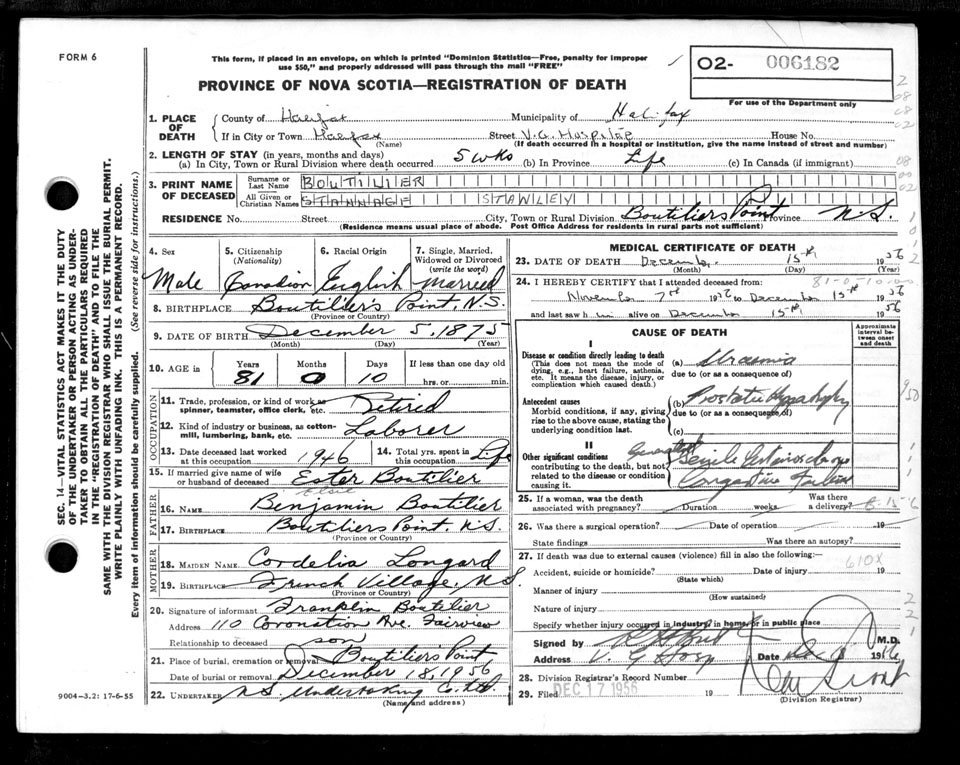 FORM 6
This form, if placed in an envelope, on which is printed "Dominion Statistics—Free, penalty for improper
use $50," and properly addressed will pass through the mail "FREE"
PROVINCE OF NOVA SCOTIA—REGISTRATION OF DEATH
O2- 006182
For use of the Department only
1. PLACE OF DEATH
County of Halifax Municipality of Halifax
If in City or Town Halifax Street V.G. Hospital House No.
(Name) (If death occurred in a hospital or institution, give the name instead of street and number)
2. LENGTH OF STAY (in years, months and days)
(a) In City, Town or Rural Division where death occurred 5 wks (b) In Province Life (c) In Canada (if immigrant)
3. PRINT NAME OF DECEASED
Surname or Last Name BOUTILIER
All Given or Christian Names STANNAGE STANLEY
RESIDENCE No. Street City, Town or Rural Division Boutiliers Point Province N.S.
(Residence means usual place of abode. Post Office Address for residents in rural parts not sufficient)
SEC. 14—VITAL STATISTICS ACT MAKES IT THE DUTY
OF THE UNDERTAKER OR PERSON ACTING AS UNDER-
TAKER TO OBTAIN ALL THE PARTICULARS REQUIRED
IN THE "REGISTRATION OF DEATH" AND TO FILE THE
SAME WITH THE DIVISION REGISTRAR WHO SHALL ISSUE THE BURIAL PERMIT.
WRITE PLAINLY WITH UNFADING INK. THIS IS A PERMANENT RECORD.
Every item of information should be carefully supplied. (See reverse side for instructions.)
4. Sex 5. Citizenship (Nationality) 6. Racial Origin 7. Single, Married, Widowed or Divorced (write the word)
Male Canadian English Married
8. BIRTHPLACE Boutilier's Point, N.S.
(Province or Country)
9. DATE OF BIRTH December 5, 1875
(Month) (Day) (Year)
10. AGE in Years Months Days If less than one day old
81 0 10 hrs. or min.
OCCUPATION
11. Trade, profession, or kind of work as spinner, teamster, office clerk, etc. Retired
12. Kind of industry or business, as cotton-mill, lumbering, bank, etc. Laborer
13. Date deceased last worked at this occupation 1946 14. Total yrs. spent in this occupation Life
15. If married give name of wife or husband of deceased Ester Boutilier
Elsie
FATHER
16. NAME Benjamin Boutilier
17. BIRTHPLACE Boutiliers Point, N.S.
(Province or Country)
MOTHER
18. MAIDEN NAME Cordelia Longard
19. BIRTHPLACE French Village, N.S.
(Province or Country)
20. Signature of informant Franklin Boutilier
Address 110 Coronation Ave. Fairview
Relationship to deceased son
21. Place of burial, cremation or removal Boutiliers Point
Date of burial or removal December 18, 1956
22. UNDERTAKER N.S. Undertaking Co. Ltd.
(Name and address)
9004—3.2: 17-6-55
MEDICAL CERTIFICATE OF DEATH
23. DATE OF DEATH December 15th 1956
(Month) (Day) (Year)
24. I HEREBY CERTIFY that I attended deceased from:
81-0-10-00
November 7th 1956 to December 15th 1956
and last saw him alive on December 15th 1956
CAUSE OF DEATH
Approximate interval between onset and death
I
Disease or condition directly leading to death
(This does not mean the mode of dying, e.g., heart failure, asthenia, etc. It means the disease, injury, or complication which caused death.)
(a) Uraemia
due to (or as a consequence of)
Antecedent causes
Morbid conditions, if any, giving rise to the above cause, stating the underlying condition last.
(b) Prostatic Hypertrophy
due to (or as a consequence of)
(c)
II
Other significant conditions
contributing to the death, but not related to the disease or condition causing it.
Generalized
Senile Arteriosclerosis
Congestive Failure
25. If a woman, was the death associated with pregnancy? Duration weeks. Was there a delivery?
26. Was there a surgical operation? Date of operation 19
State findings Was there an autopsy?
27. If death was due to external causes (violence) fill in also the following:—
610X
Accident, suicide or homicide? Date of injury 19
(State which)
Manner of injury
(How sustained)
Nature of injury
Specify whether injury occurred in industry, in home, or in public place
Signed by M.D.
Address V. G Hosp Date 19
28. Division Registrar's Record Number
29. Filed DEC 17 1956 19
(Division Registrar)